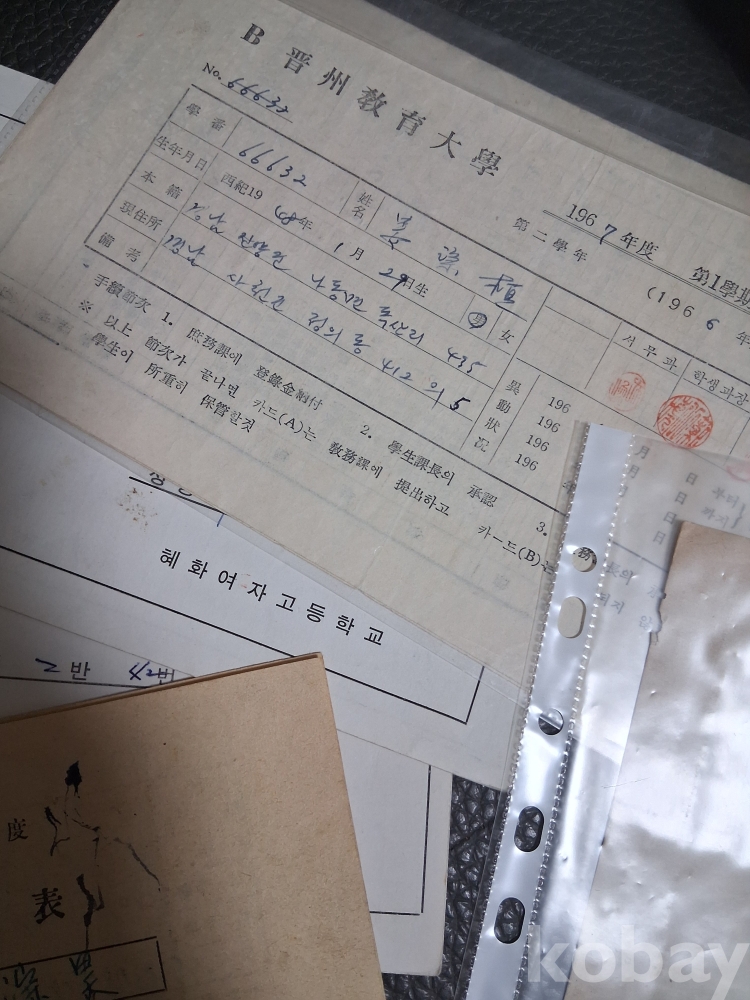 B 晋州教育大學
No. 66632
196 7 年度 第1學期
第二學年 (196 6 年
學番 66632 姓名
生年月日 西紀19 48年 1月 29日生 男 女
本籍 경남 진양군 나동면 독산리 435
現住所 경남 사천군 정의동 412의5
備考
異動狀況 196
196
196
196
서무과 학생과장
手續節次 1. 庶務課에 登錄金納付 2. 學生課長의 承認 3.
※ 以上 節次가 끝나면 카드(A)는 敎務課에 提出하고 카드(B)는
學生이 所重히 保管할것
月 日 부터
月 日 까지
日
혜화여자고등학교
2반 42번
度
表
kobay